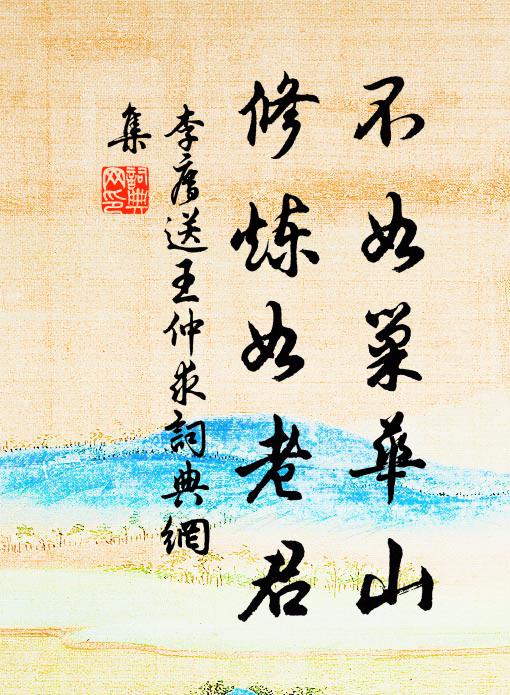 不如巢華山
修炼如老君
李廌送王仲求詞典網
集
詞典
网印